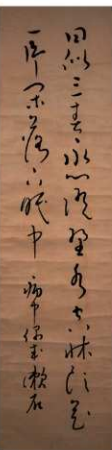 日似三春永心隨野水空牀頭花
一片閑落小眠中 病中偶成 漱石